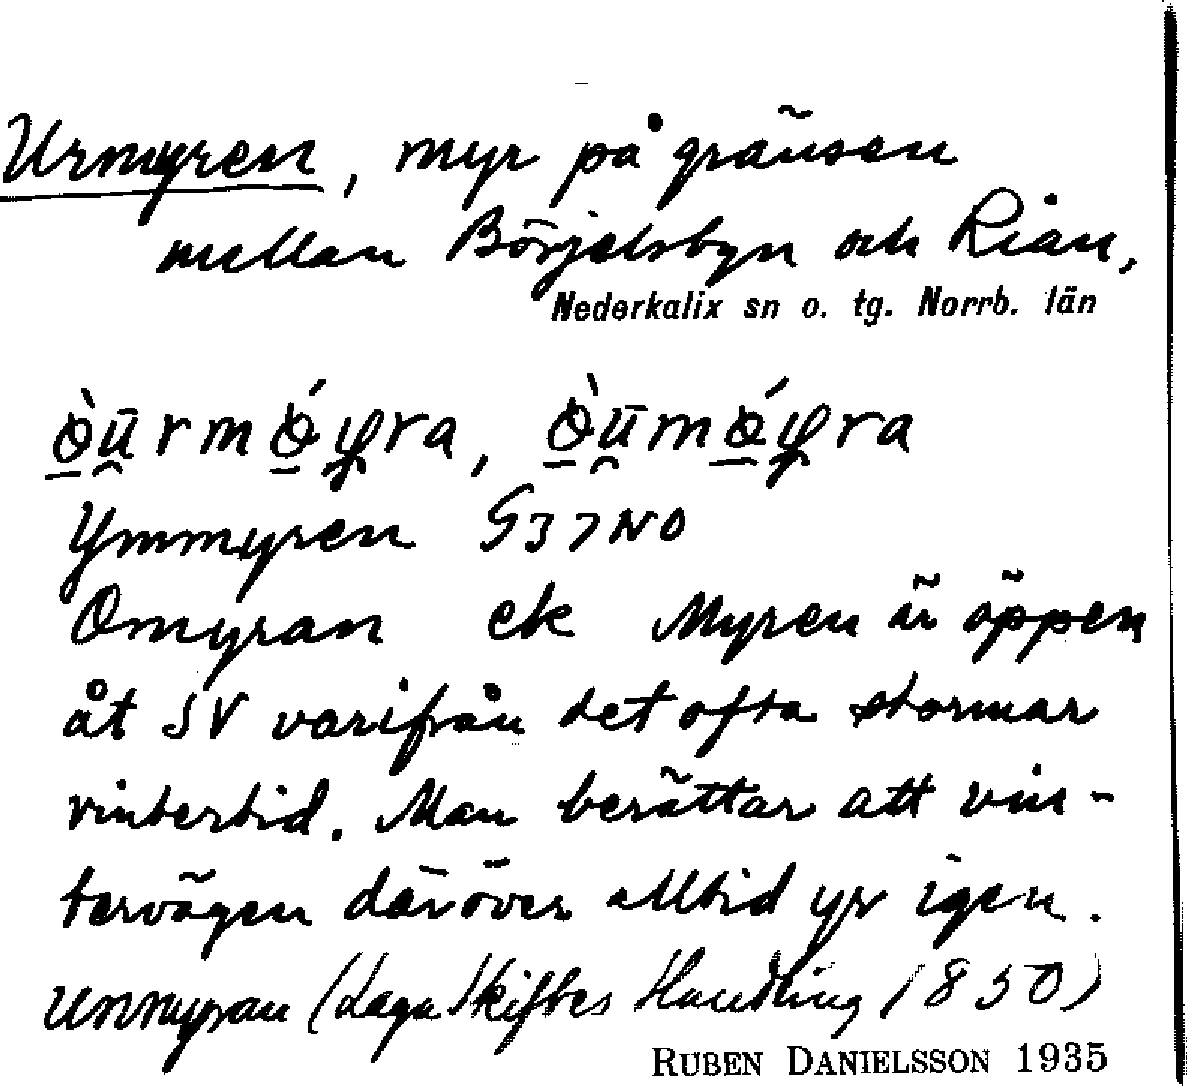 Urmyren, myr på gränsen
mellan Börjelsbyn och Rian,
Nederkalix sn o. tg. Norrb. län
Ymmyren S37NO
Omyran ek Myren är öppen
åt SV varifrån det ofta stormar
vintertid. Man berättar att vin-
tervägen däröver alltid yr igen.
(Laga Skiftes Handling 1850)
RUBEN DANIELSSON 1935